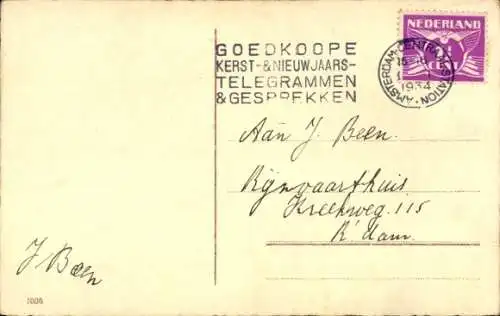 NEDERLAND
GOEDKOOPE
KERST- & NIEUWJAARS-
TELEGRAMMEN
& GESPREKKEN
AMSTERDAM-CENTRAALSTATION
1934
Aan J. Been.
Rijnvaarthuis
Kreekweg. 115
R'dam.
J Been